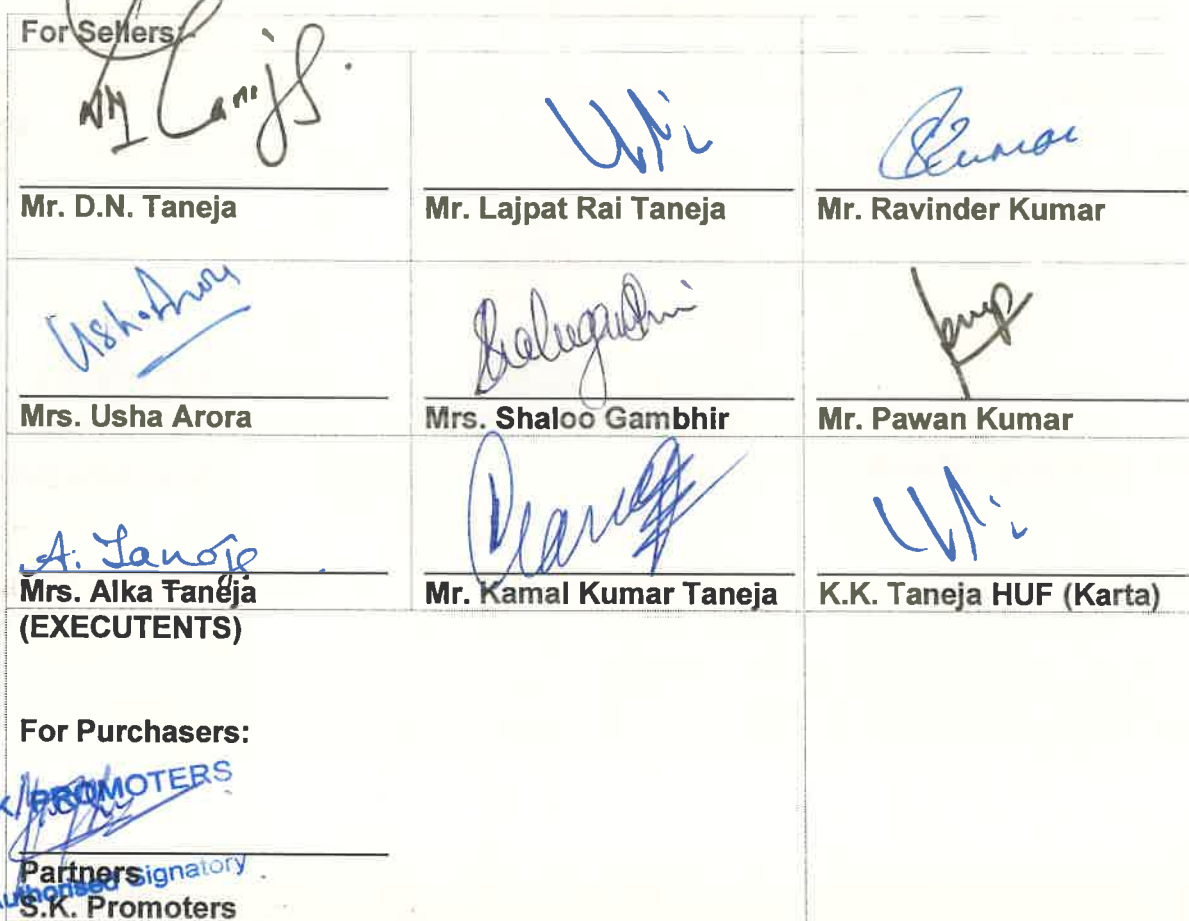 For Sellers:
Mr. D.N. Taneja
Mr. Lajpat Rai Taneja
Mr. Ravinder Kumar
Usha Arora
Mrs. Usha Arora
Mrs. Shaloo Gambhir
Mr. Pawan Kumar
A. Taneja
Mrs. Alka Taneja
(EXECUTENTS)
Mr. Kamal Kumar Taneja
K.K. Taneja HUF (Karta)
For Purchasers:
PROMOTERS
Partners
Authorised Signatory
S.K. Promoters